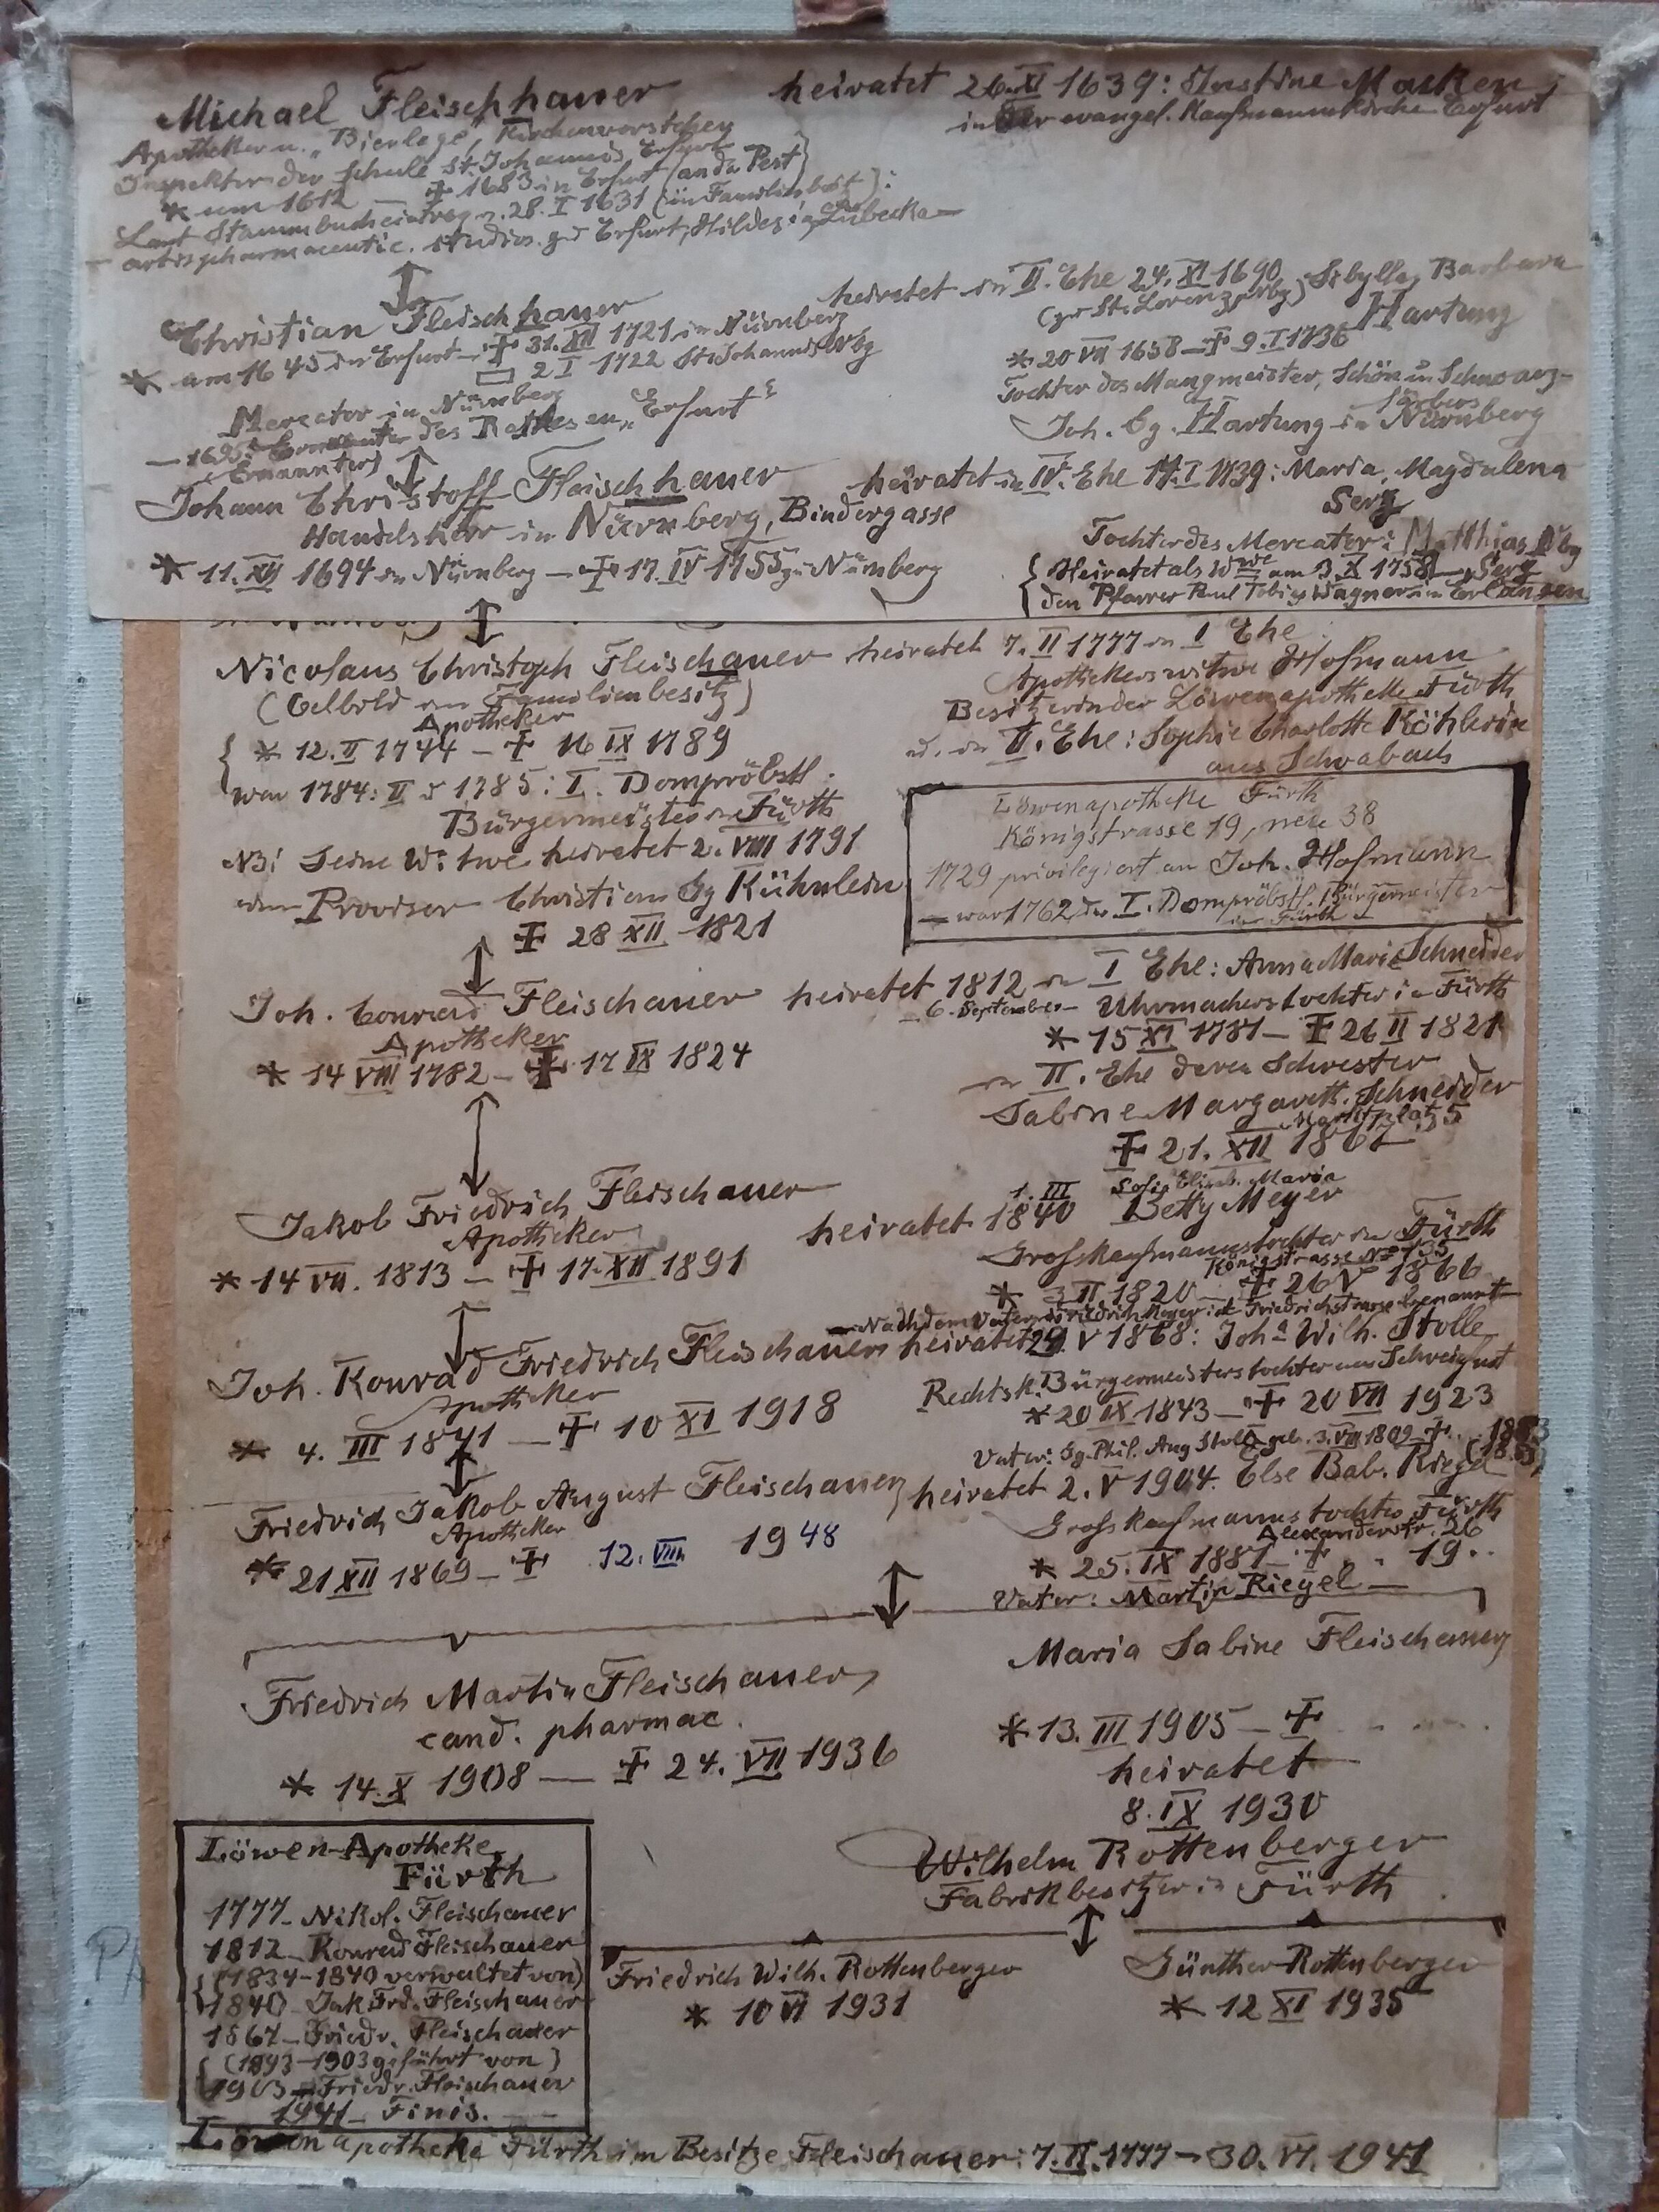 Michael Fleischhauer heiratet 26.XI 1639: Justine Macken,
in der evangel. Kaufmannskirche Erfurt
Apotheker u. „Bierlege", Kirchenvorsteher
Inspektor der Schule St. Johannis Erfurt
* um 1612 – ✝ 1683 in Erfurt (an da Pest)
Laut Stammbucheintrag v. 28. I 1631 (in Familienbesitz):
artis pharmaceutic. studios. zu Erfurt, Hildes: Lübecka –
Christian Fleischhauer heiratet in II. Ehe 24. XI 1690 Sibylla, Barbara
(zu St. Lorenz, Nbg) Hartung
* am 1645 in Erfurt – ✝ 31. XII 1721 in Nürnberg
2 I 1722 St. Johannis Nbg
* 20 VII 1658 – ✝ 9. I 1736
Tochter des Mangmeister, Schön u Schwarz-
färbers
Joh. Gg. Hartung in Nürnberg
Mercator in Nürnberg
– 1695 des Rathes zu „Erfurt"
(Ernannter)
Johann Christoff Fleischhauer heiratet in IV. Ehe 17. I 1739: Maria, Magdalena
Serz
Handelsherr in Nürnberg, Bindergasse
* 11. XII 1694 in Nürnberg – ✝ 17. IV 1755 zu Nürnberg
Tochter des Mercator: Matthias Nbg
Serz
Heiratet als Wwe am 3. X 1758
den Pfarrer Paul Tobias Wagner in Erlangen
Nicolaus Christoph Fleischauer heiratet 7. II 1777 in I Ehe:
(Oelbild im Familienbesitz)
Apotheker
Apothekerswitwe Hofmann
Besitzerin der Löwenapotheke Fürth
* 12. II 1744 – ✝ 16 IX 1789
u. in II. Ehe: Sophie Charlotte Köhlerin
aus Schwabach
war 1784: II u 1785: I. Dompröbstl.
Bürgermeister in Fürth
NB! Seine Witwe heiratet 2. VIII 1791
den Provisor Christian Gg Kühnlein
✝ 28 XII 1821
Löwenapotheke Fürth
Königstrasse 19, neu 38
1729 privilegiert an Joh. Hofmann
– war 1762 der I. Dompröbstl. Bürgermeister
in Fürth –
Joh. Conrad Fleischauer heiratet 1812 in I Ehe: Anna Marie Schneider
– 6. September – Uhrmacherstochter in Fürth
Apotheker
* 14 VIII 1782 – ✝ 17 IX 1824
* 15 XI 1781 – ✝ 26 II 1821
in II. Ehe deren Schwester
Sabine Margareth. Schneider
Marktplatz 5
✝ 21. XII 1867
Jakob Friedrich Fleischauer
Apotheker
heiratet 1. III 1840 Sofie Elisab. Maria
Betty Meyer
Grosskaufmannstochter in Fürth
Königstrasse No 135
* 14 VII. 1813 – ✝ 17. XII 1891
* 3 II 1820 – ✝ 26 V 1866
– Nach dem Vater Friedrich Meyer ist Friedrichstrasse benannt –
Joh. Konrad Friedrich Fleischauer heiratet 29. V 1868: Joha Wilh. Stolle
Apotheker
Rechtsk. Bürgermeisterstochter aus Schweinfurt
* 4. III 1841 – ✝ 10 XI 1918
* 20 IX 1843 – ✝ 20 VII 1923
Vater: Gg. Phil. Aug Stolle geb. 3. VII 1809 ✝ . .
Friedrich Jakob August Fleischauer heiratet 2. V 1904. Else Bab. Riegel
Apotheker
Grosskaufmannstochter Fürth
Alexanderstr. 26
* 21 XII 1869 – ✝ 12. VIII 1948
* 25. IX 1881 – ✝ . . 19..
Vater: Martin Riegel –
Friedrich Martin Fleischauer
cand. pharmac.
* 14. X 1908 – ✝ 24. VII 1936
Maria Sabine Fleischauer
* 13. III 1905 – ✝ . . . .
heiratet
8. IX 1930
Wilhelm Rottenberger
Fabrikbesitzer in Fürth
Friedrich Wilh. Rottenberger
* 10 VI 1931
Günther Rottenberger
* 12 XI 1935
Löwen-Apotheke
Fürth
1777 – Nikol. Fleischauer
1812 – Konrad Fleischauer
(1834–1840 verwaltet von)
1840 – Jak. Frd. Fleischauer
1867 – Friedr. Fleischauer
(1893–1903 geführt von)
1903 – Friedr. Fleischauer
1941 – Finis.
Löwenapotheke Fürth im Besitze Fleischauer: 7. II. 1777 – 30. VI. 1941